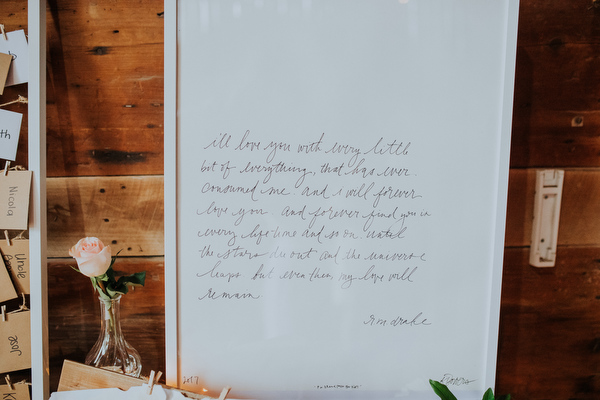 i'll love you with every little
bit of everything, that has ever
consumed me. and i will forever
love you. and forever find you in
every lifetime and so on. until
the stars die out and the universe
leaps. but even then, my love will
remain
r.m drake
2017
th
Nicola
Uncle
Jose
K